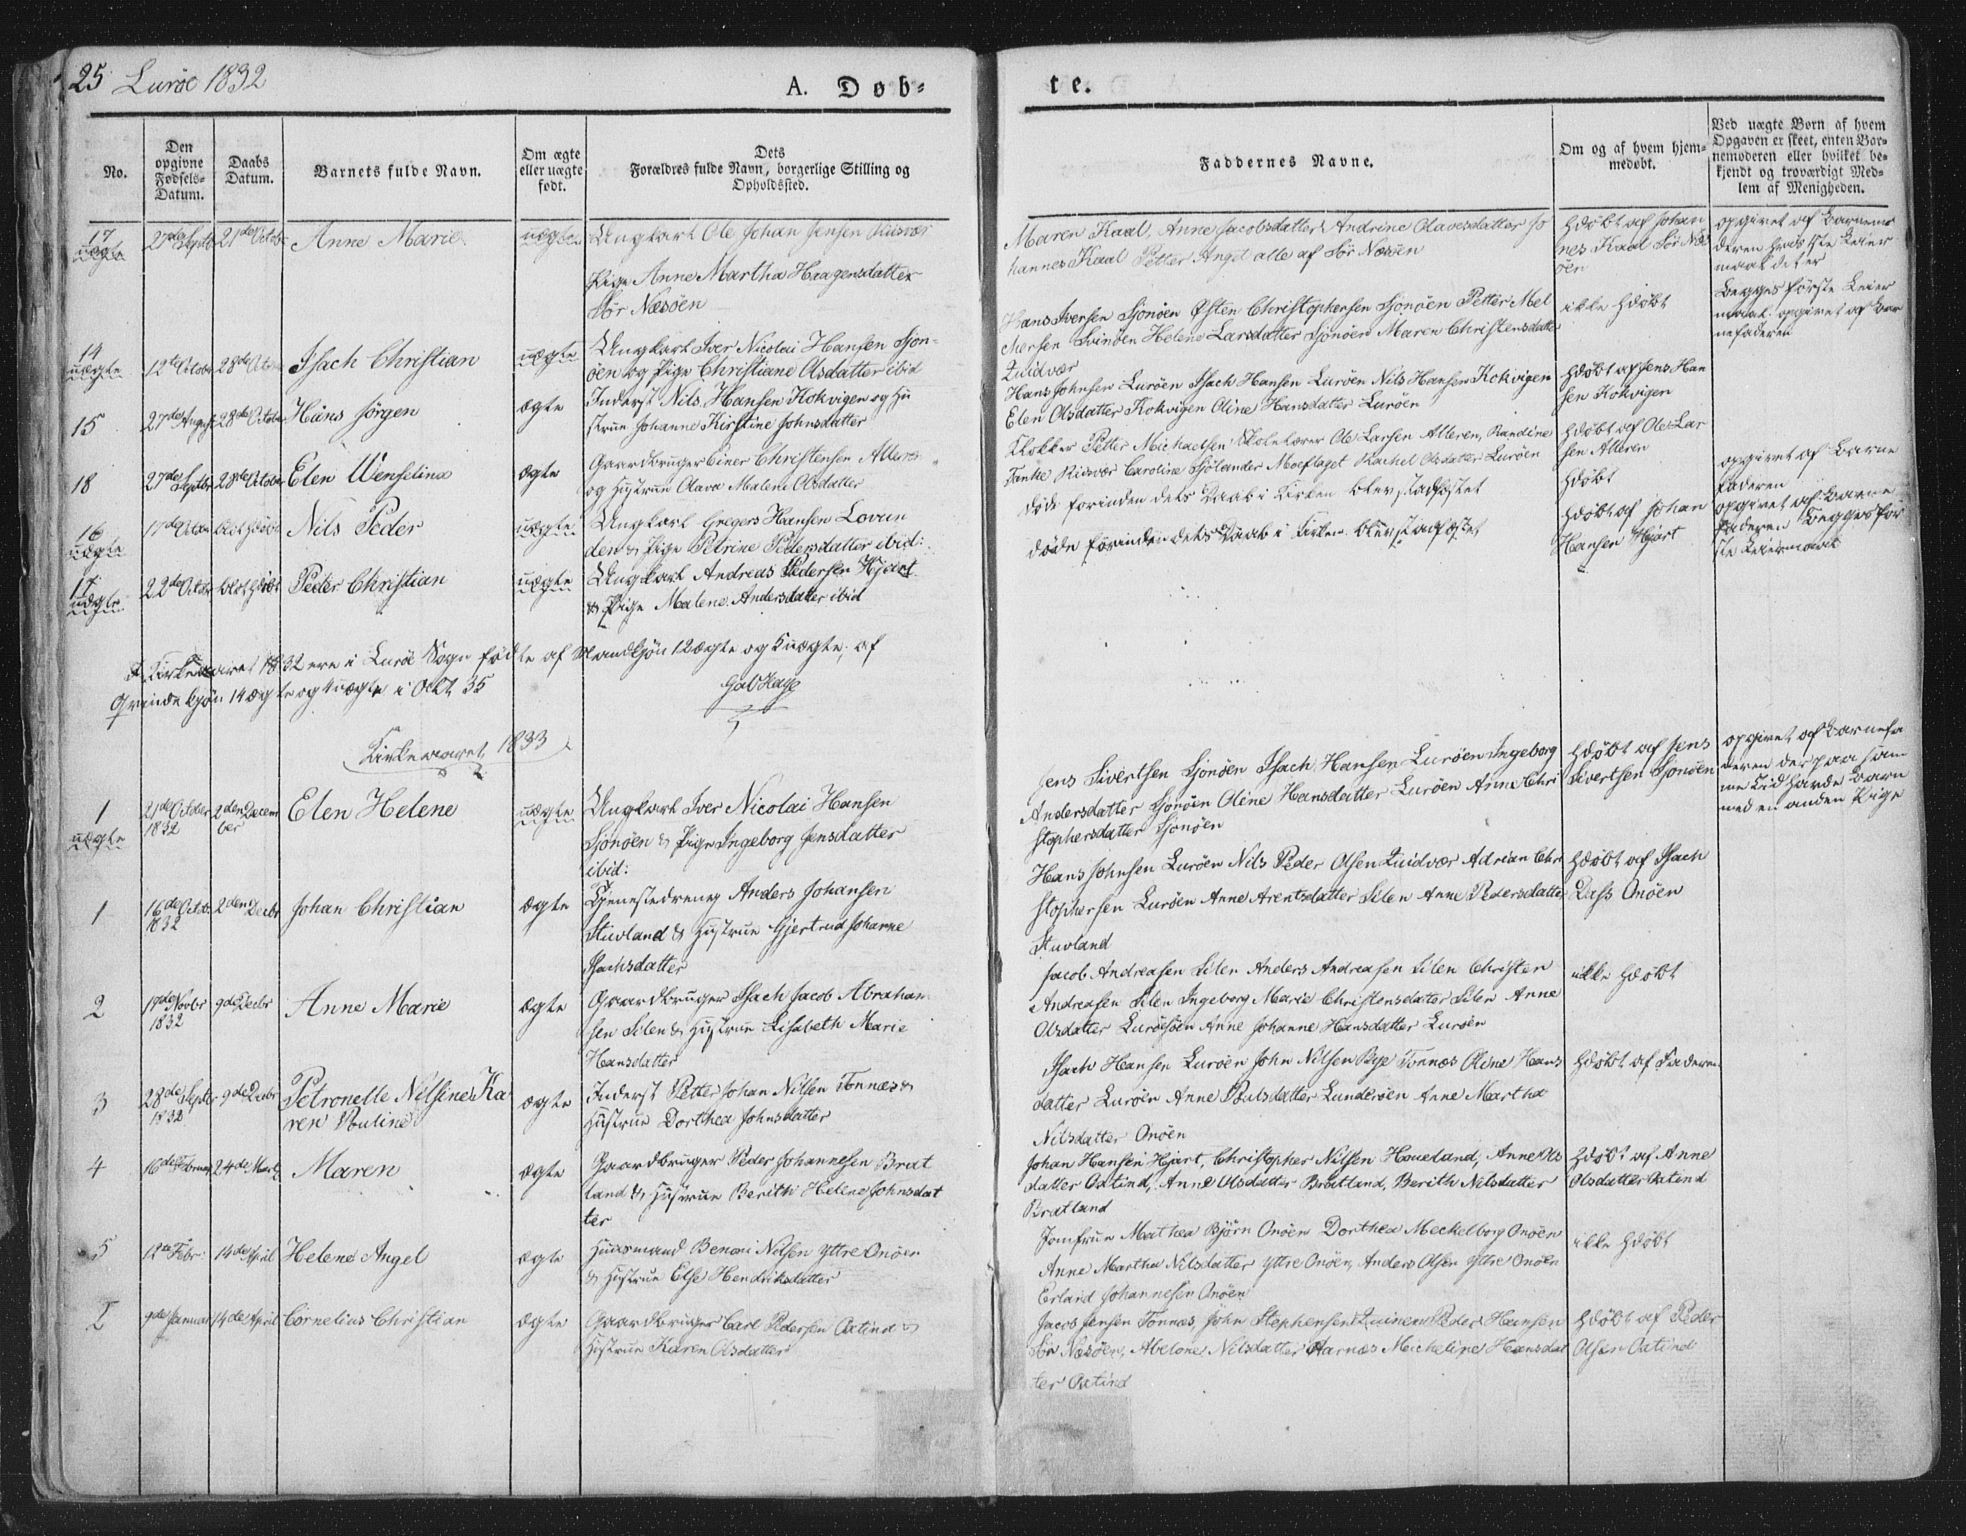 25 Lurøe 1832
A. Døb-
te.
No.
Den opgivne Fødsels-Datum.
Daabs Datum.
Barnets fulde Navn.
Om ægte eller uægte født.
Dets Forældres fulde Navn, borgerlige Stilling og Opholdssted.
Faddernes Navne.
Om og af hvem hjem-medøbt.
Ved uægte Børn af hvem Opgaven er skeet, enten Bar-nemoderen eller hvilket be-kjendt og troværdigt Med-lem af Menigheden.
17 uægte
Anne Marie
uægte
Ungkarl Ole Johan Jensen Riisvær
Pige Anne Martha Haagensdatter
Sør Næsøen
Maren Kaal, Anne Jacobsdatter Andrine Olavesdatter Jo
hannes Kaal Petter Angel alle af Sør Næsøen
Hdøbt af Johan
nes Kaal Sør Næs
øen
14 uægte
12te Octobr 28de Octobr
Isach Christian
uægte
Ungkarl Iver Nicolai Hansen Sjon-
øen og Pige Christiane Olsdatter ibid
Hans Iversen Sjonøen Østen Christophersen Sjonøen Petter Mel
chersen Svinøen Helene Larsdatter Sjonøen Maren Christensdatter
Quidvær
ikke Hdøbt
Begges første Leier
maal opgivet af Bar
nefaderen
15
27de August 28de Octobr
Hans Jørgen
ægte
Inderst Nils Hansen Kokvigen og Hu
strue Johanne Kirstine Johnsdatter
Hans Johnsen Lurøen Isach Hansen Lurøen Nils Hansen Kokvigen
Elen Olsdatter Kokvigen Oline Hansdatter Lurøen
Hdøbt af Jens Han
sen Kokvigen
18
27de Septbr 28de Octobr
Elen Wenseline
ægte
Gaardbruger Einer Christensen Alteren
og Hustrue Olava Malene Olsdatter
Klokker Petter Michaelsen Skolelærer Ole Larsen Alteren, Randine
Tanke Riisvær Caroline Sjølander Moeflaget Rachel Olsdatter Lurøen
Hdøbt af Ole Lar
sen Alteren
16 uægte
17de Octobr
Nils Peder
uægte
Ungkarl Gregers Hansen Lovun
den & Pige Petrine Pedersdatter ibid:
døde forinden dets Daab i Kirken blev stadfæstet
Hdøbt
opgivet af Barne
faderen
17 uægte
22de Octobr
Peder Christian
uægte
Ungkarl Andreas Pedersen Hjart
& Pige Malene Andersdatter ibid
døde forinden dets Daab i Kirken blev stadfæstet
Hdøbt af Johan
Hansen Hjart
opgivet af Barne
faderen Begges før
ste Leiermaal
I Kirkeaaret 1832 ere i Lurøe Sogn fødte af Mandkjøn 12 ægte og 5 uægte, af
Qvindekjøn 14 ægte og 4 uægte i Alt 35
Kirkeaaret 1833
1 uægte
21de October 1832
2den Decem
ber
Elen Helene
uægte
Ungkarl Iver Nicolai Hansen
Sjonøen & Pige Ingeborg Jensdatter
ibid:
Jens Sivertsen Sjonøen Isach Hansen Lurøen Ingeborg
Andersdatter Sjonøen Oline Hansdatter Lurøen Anne Chri
stophersdatter Sjonøen
Hdøbt af Jens
Sivertsen Sjonøen
opgivet af Barnefa
deren der paa sam
me Tid havde Barn
med en anden Pige
1
16de Octobr 1832
2den Decbr
Johan Christian
ægte
Tjenestedreng Anders Johansen
Stuvland & Hustrue Gjertrud Johanne
Isachsdatter
Hans Johnsen Lurøen Nils Peder Olsen Quidvær Adrian Chri
stophersen Lurøen Anne Arentsdatter Silen Anne Pedersdatter
Stuvland
Hdøbt af Isach
Dass Onøen
2
1832
9de Decbr
Anne Marie
ægte
Gaardbruger Isach Jacob Abraham
sen Silen & Hustrue Lisabeth Marie
Hansdatter
Jacob Andreasen Silen Anders Andreasen Silen Christen
Andreasen Silen Ingeborg Marie Christensdatter Silen Anne
Olsdatter Lurøesøen Anne Johanne Hansdatter Lurøen
ikke Hdøbt
3
1832
9de Decbr
Petronelle Nilsine Ka
ren Pouline
ægte
Inderst Petter Johan Nilsen Tonnæs &
Hustrue Dorthea Johnsdatter
Isach Hansen Lurøen John Nilsen Bye Tonnæs Oline Hans
datter Lurøen Anne Poulsdatter Lunderøen Anne Martha
Nilsdatter Onøen
Hdøbt af Faderen
4
16de Februar 24de Marts
Maren
ægte
Gaardbruger Peder Johannesen Brat
land & Hustrue Berith Helene Johnsdat
ter
Johan Hansen Hjart, Christopher Nilsen Haueland, Anne Ols
datter Oxtind, Anne Olsdatter Bratland, Berith Nilsdatter
Bratland
Hdøbt af Anne
Olsdatter Oxtind
5
14de April
Helene Angel
ægte
Huusmand Benoni Nilsen Yttre Onøen
& Hustrue Else Hendriksdatter
Jomfrue Mathea Bjørn Onøen Dorthea Meckelborg Onøen
Anne Martha Nilsdatter Yttre Onøen, Anders Olsen Yttre Onøen
Erland Johannesen Onøen
ikke Hdøbt
2
9de Januar 14de April
Cornelius Christian
ægte
Gaardbruger Carl Pedersen Oxtind &
Hustrue Karen Olsdatter
Jacob Jensen Tonnæs, John Stephensen Peder Hansen
Sør Næsøen, Abelone Nilsdatter Michaline Hansdat
ter Oxtind
Hdøbt af Peder
Olsen Oxtind